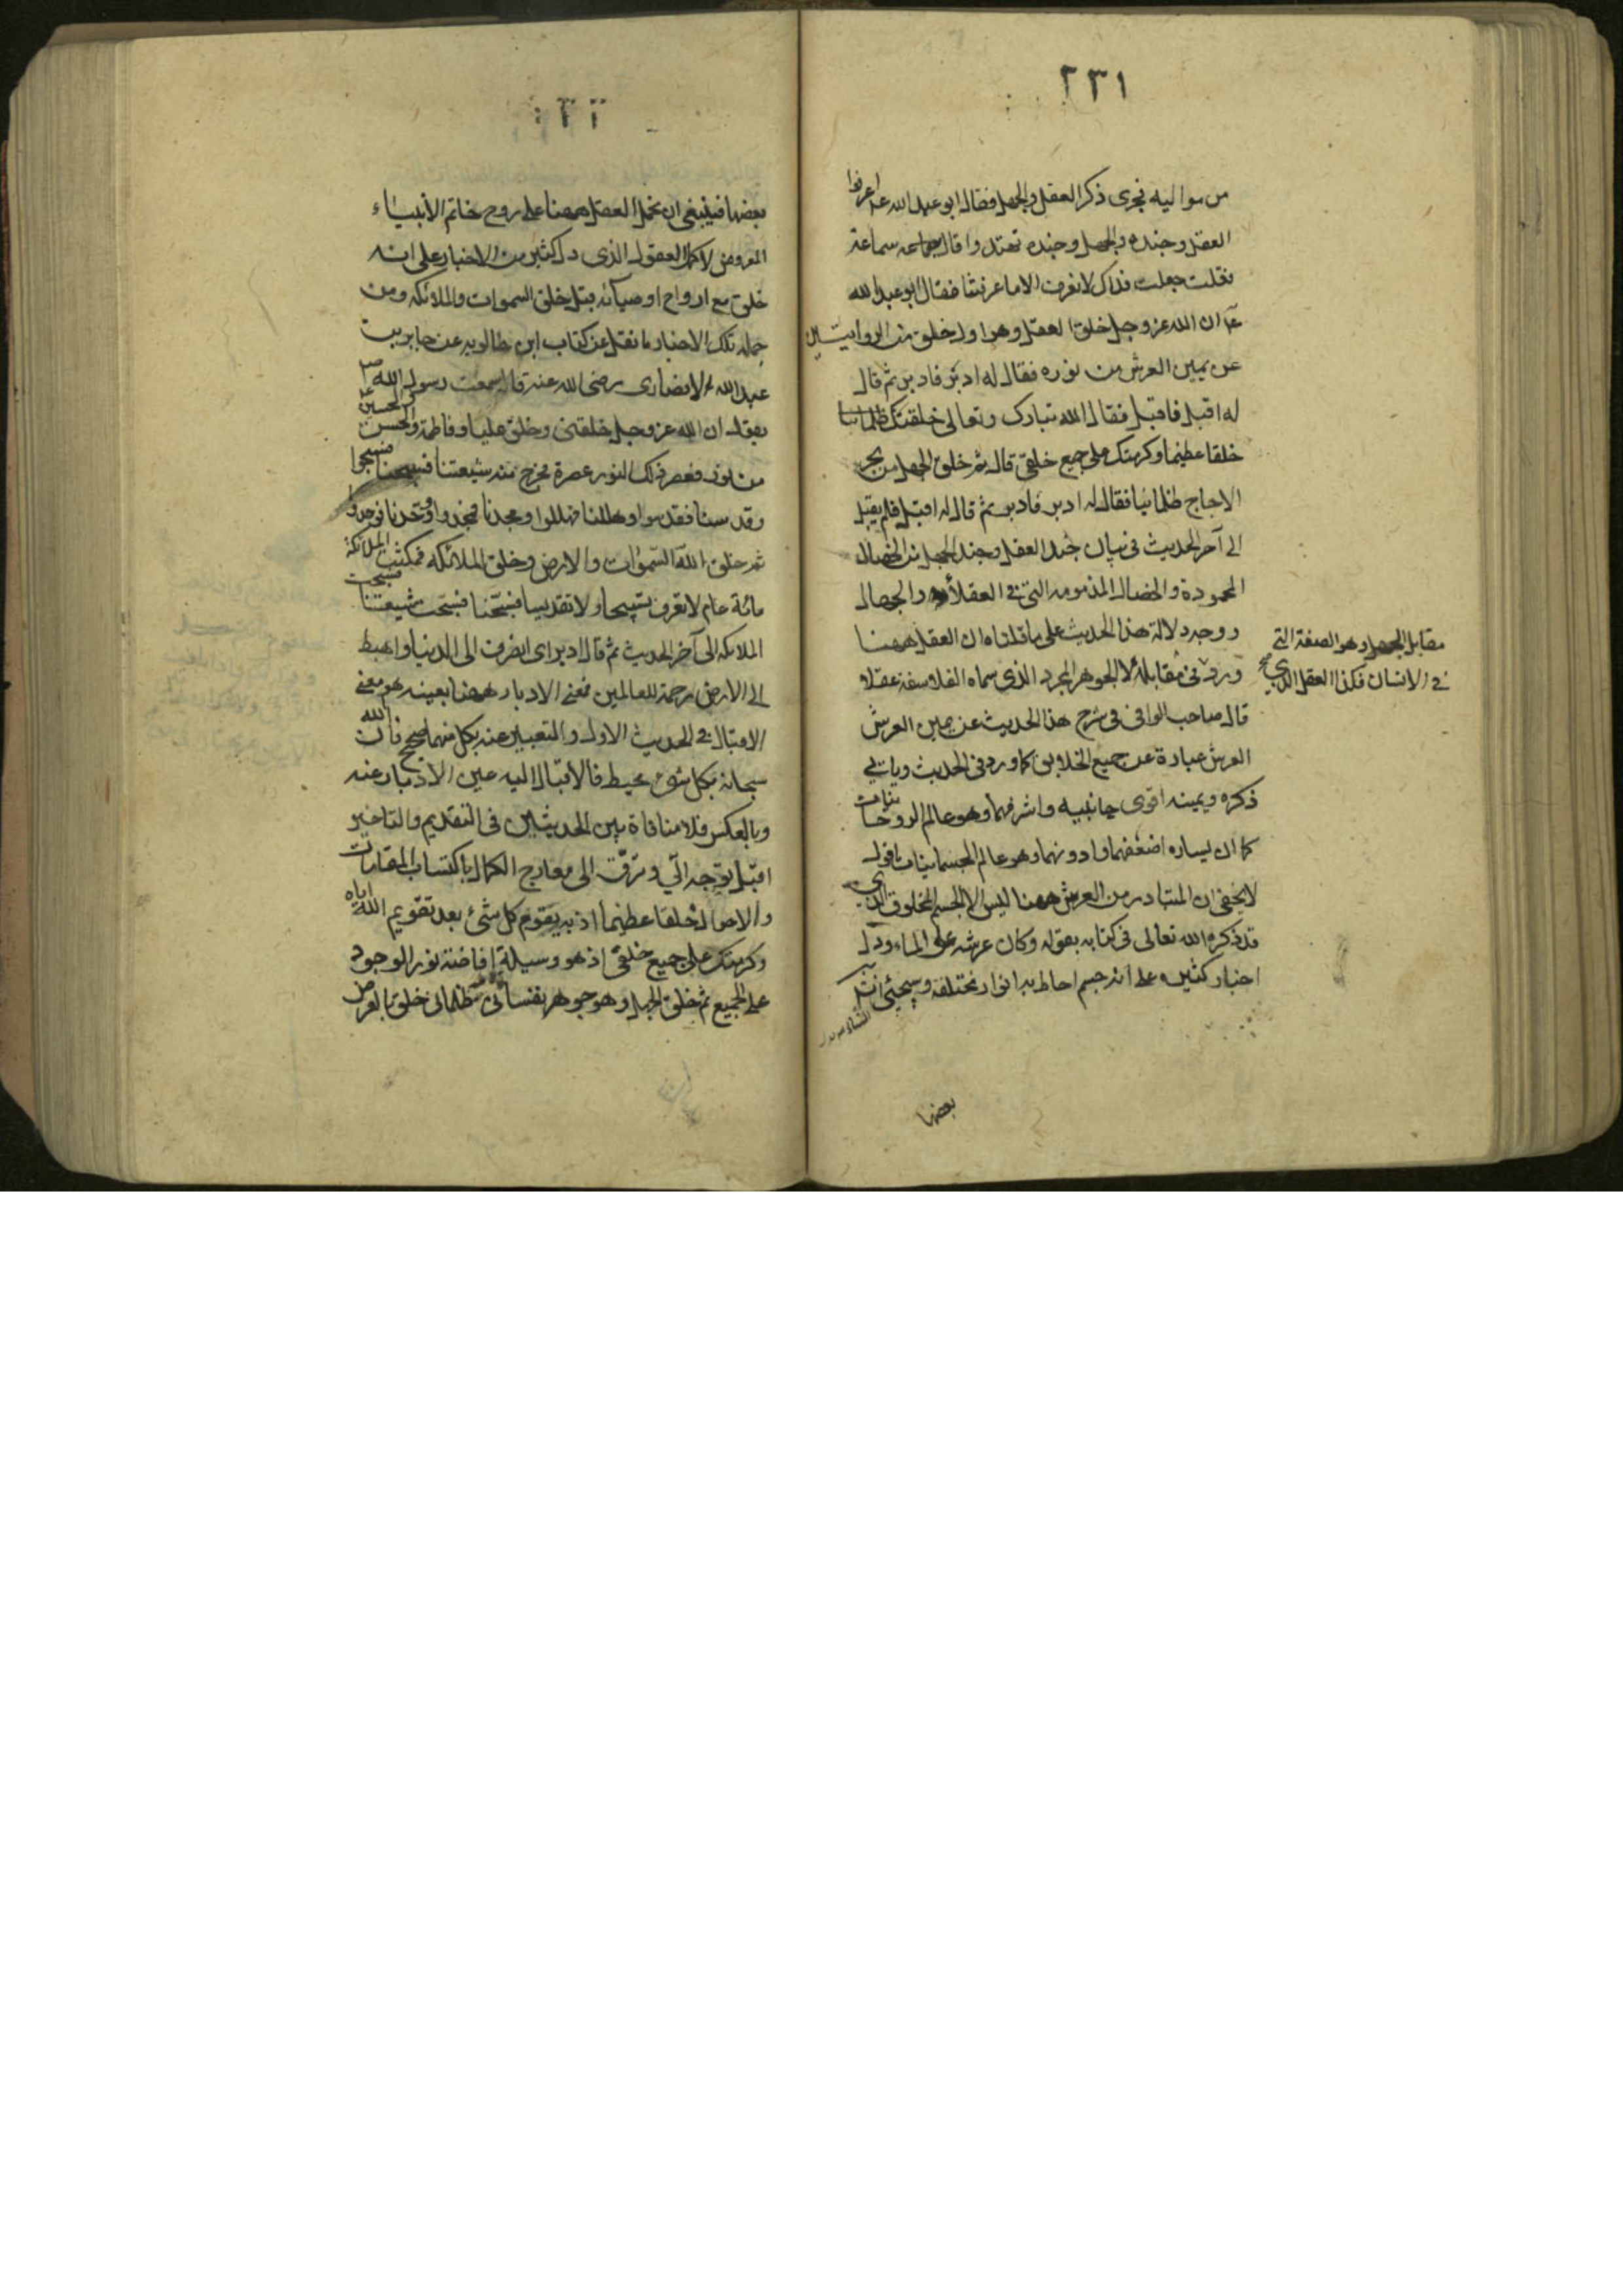 ٢٣١
من مواليه فجرى ذكر العقل والجهل فقال ابو عبد الله عـ اعرفوا
العقل وجنده والجهل وجنده تهتدوا قال سماعة
فقلت جعلت فداك لا نعرف الا ما عرفتنا فقال ابو عبد الله
عـ ان الله عز وجل خلق العقل وهو اول خلق من الروحانيين
عن يمين العرش من نوره فقال له ادبر فادبر ثم قال
له اقبل فاقبل فقال الله تبارك وتعالى خلقتك
خلقا عظيما وكرمتك على جميع خلقى قال ثم خلق الجهل من بحر
الاجاج ظلمانيا فقال له ادبر فادبر ثم قال له اقبل فلم يقبل
الى آخر الحديث فى بيان جند العقل وجند الجهل من الخصال
المحمودة والخصال المذمومه التى فى العقلاء والجهال
ووجه دلالة هذا الحديث على ما قلناه ان العقل ههنا
ورد فى مقابلة لا الجوهر المجرد الذى سماه الفلاسفة عقلا
مقابل الجهل وهو الصفة التى
فى الانسان فكذا العقل الذى صح
قال صاحب الوافى فى شرح هذا الحديث عن يمين العرش
العرش عبارة عن جميع الخلايق كما ورد فى الحديث وياتى
ذكره ويمينه اقوى جانبيه واشرفهما وهو عالم الروحانيات
كما ان يساره اضعفهما وادونهما وهو عالم الجسمانيات اقول
لا يخفى ان المتبادر من العرش ههنا ليس الا الجسم المخلوق الذى
قد ذكره الله تعالى فى كتابه بقوله وكان عرشه على الماء ودل
اخبار كثيره على انه جسم احاط به انوار مختلفه وسيجئ
بعضها
بعضها فينبغى ان يحمل العقل ههنا على روح خاتم الانبياء
المعروض لاكمل العقول الذى دل كثير من الاخبار على انه
خلق مع ارواح اوصيائه قبل خلق السموات والملائكه ومن
جمله تلك الاخبار ما نقل عن كتاب ابن خالويه عن جابر بن
عبد الله الانصارى رضى الله عنه قال سمعت رسول الله ص
يقول ان الله عز وجل خلقنى وخلق عليا وفاطمة والحسن والحسين عـ
من نور فعصر ذلك النور عصرة فخرج منه شيعتنا فسبحنا فسبحوا
وقدسنا فقدسوا وهللنا فهللوا ومجدنا فمجدوا ووحدنا فوحدوا
ثم خلق الله السموات والارض وخلق الملائكه فمكثت الملائكة
مائة عام لا تعرف تسبيحا ولا تقديسا فسبحنا فسبحت شيعتنا فسبحت
الملائكه الى آخر الحديث ثم قال ادبر اى انصرف الى الدنيا واهبط
الى الارض رحمة للعالمين فمعنى الادبار ههنا بعينه هو معنى
الاقبال فى الحديث الاول والتعبير عنه بكل منهما صحيح فان الله
سبحانه بكل شئ محيط فالاقبال اليه عين الادبار عنه
وبالعكس فلا منافاة بين الحديثين فى التقديم والتاخير
اقبل توجه الى وترق الى معارج الكمال باكتساب المقامات
والاحوال خلقا عظيما اذ به يقوم كل شئ بعد تقويم الله اياه
وكرمتك على جميع خلقى اذ هو وسيلة افاضة نور الوجود
على الجميع ثم خلق الجهل وهو جوهر نفسانى ظلمانى خلق بالعرض